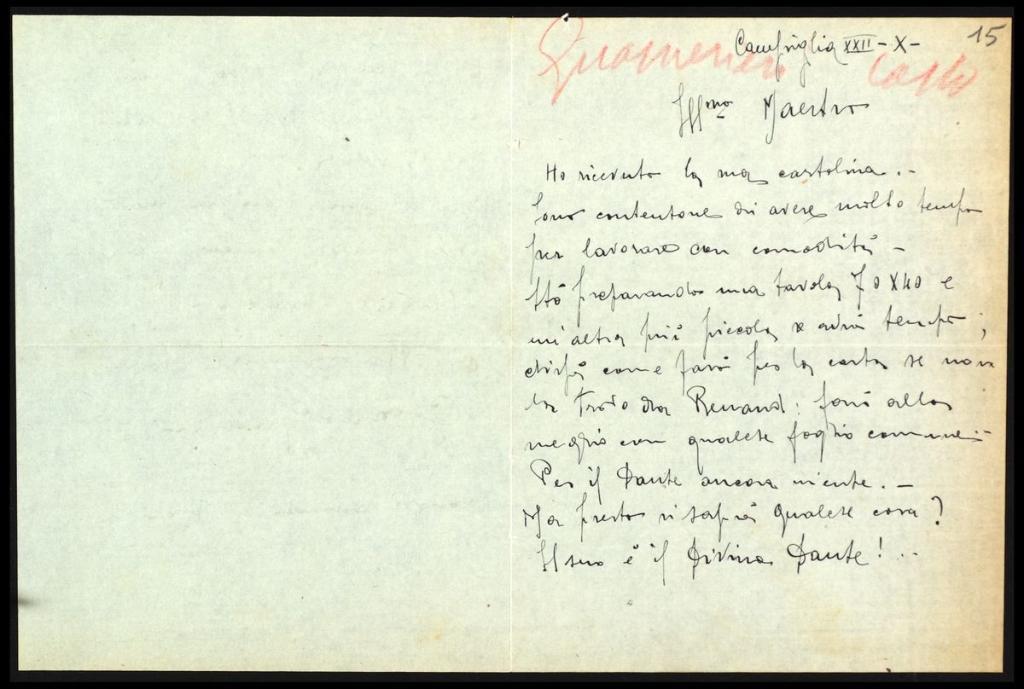 15
Campiglia XXII - X -
Ill.mo Maestro
Ho ricevuto la sua cartolina. -
Sono contentone di avere molto tempo
per lavorare con comodità -
Stò preparando una tavola 70x40 e
un'altra più piccola se avrò tempo;
come farò per la carta se non
la trovo da Renaud: farò alla
meglio con qualche foglio comune -
Per il Dante ancora niente. -
Ma presto si saprà qualche cosa?
Il suo è il Divino Dante! ..